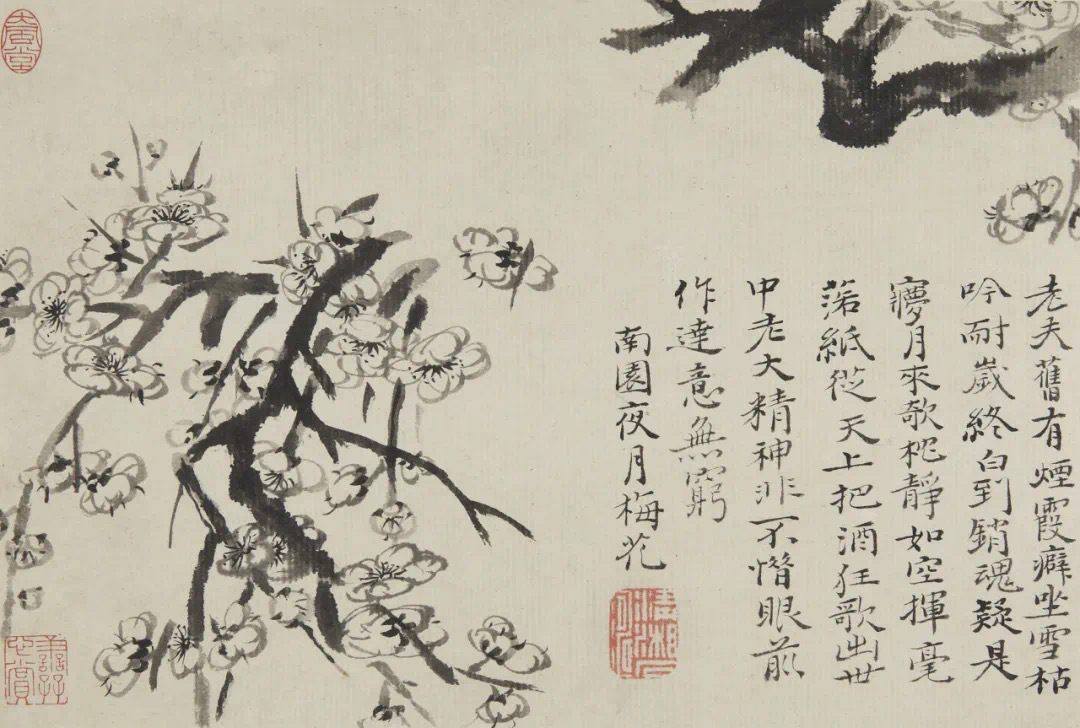 老夫舊有煙霞癖坐雪枯
吟耐歲終白到銷魂疑是
夢月來欹枕靜如空揮毫
落紙從天上把酒狂歌出世
中老大精神非不惜眼前
作達意無窮
南園夜月梅花
大風堂